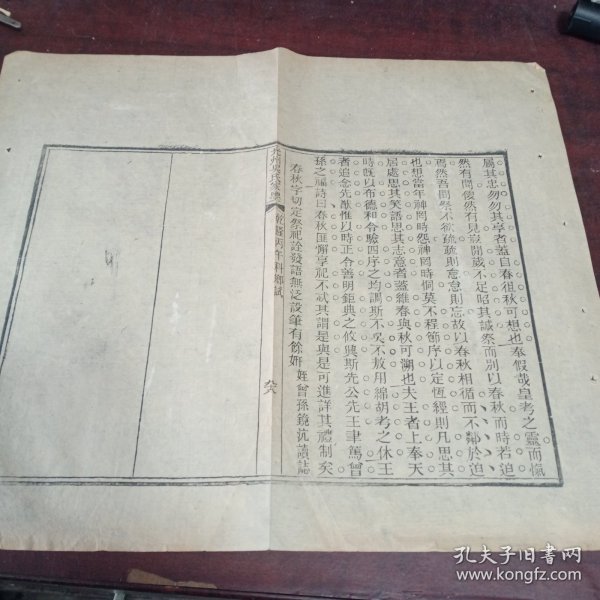 屬其忠勿勿其享者蓋自春徂秋可想也奉假哉皇考之靈而愾
然有聞僾然有見設閱歲不足昭其誠祭而別以春秋而時若迫
焉然吾聞祭不欲疏疏則怠怠則忘故以春秋相循而不鄰於迫
也想當年神罔時怨神罔時恫莫不程節序以定恆經則凡思其
居處思其笑語思其志意者蓋維春與秋可溯也夫王者上奉天
時旣以布德和令驗四序之均調斯不吳不敖用綿胡考之休王
者追念先猷惟以時正令善明鉅典之攸興斯先公先王聿篤曾
孫之福詩曰春秋匪懈享祀不忒其謂是與是可進詳其禮制矣
春秋字切定祭祀詮發語無泛設筆有餘妍 姪曾孫鏡沆謹誌
州吳氏家
乾隆丙午科鄉試
孔夫子旧书网
www.kongfz.com